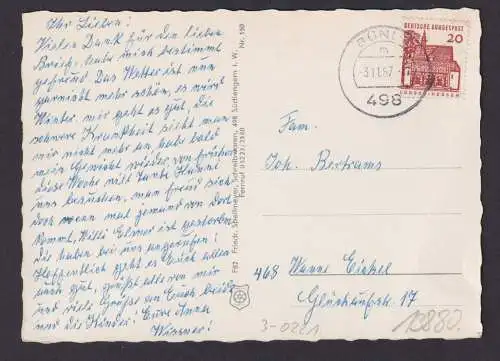 Ihr Lieben!
Vielen Dank für den lieben
Brief, habe mich bestimmt
gefreud Das Wetter ist nun
garnicht mehr schön, es wird
Winter. mir geht es gut, die
schwere Krankheit sieht man
mir nicht mehr an habe bald
mein Gewicht wieder von früher
diese Woche will Tante Hanni
uns besuchen, man freud sich
doch wenn mal jemand von Dort
kommt, Willi Elsner ist gestorben
die haben bei uns angerufen!
Hoffentlich geht es Euch allen
auch gut, grüßt alle von mir
und viele Grüße an Euch beide
und die Kinder! Eure Anna
Wiesmer!
F82 Friedr. Schellmeyer, Schreibwaren, 498 Südlengern i. W. Nr. 150
Fernruf 05223/3980
BÜNDE
m
-3.11.67
498
DEUTSCHE BUNDESPOST
20
LORSCH/HESSEN
Fam.
Joh. Bertrams
468 Wanne Eickel
Glückaufstr. 17
3-0221
13880.